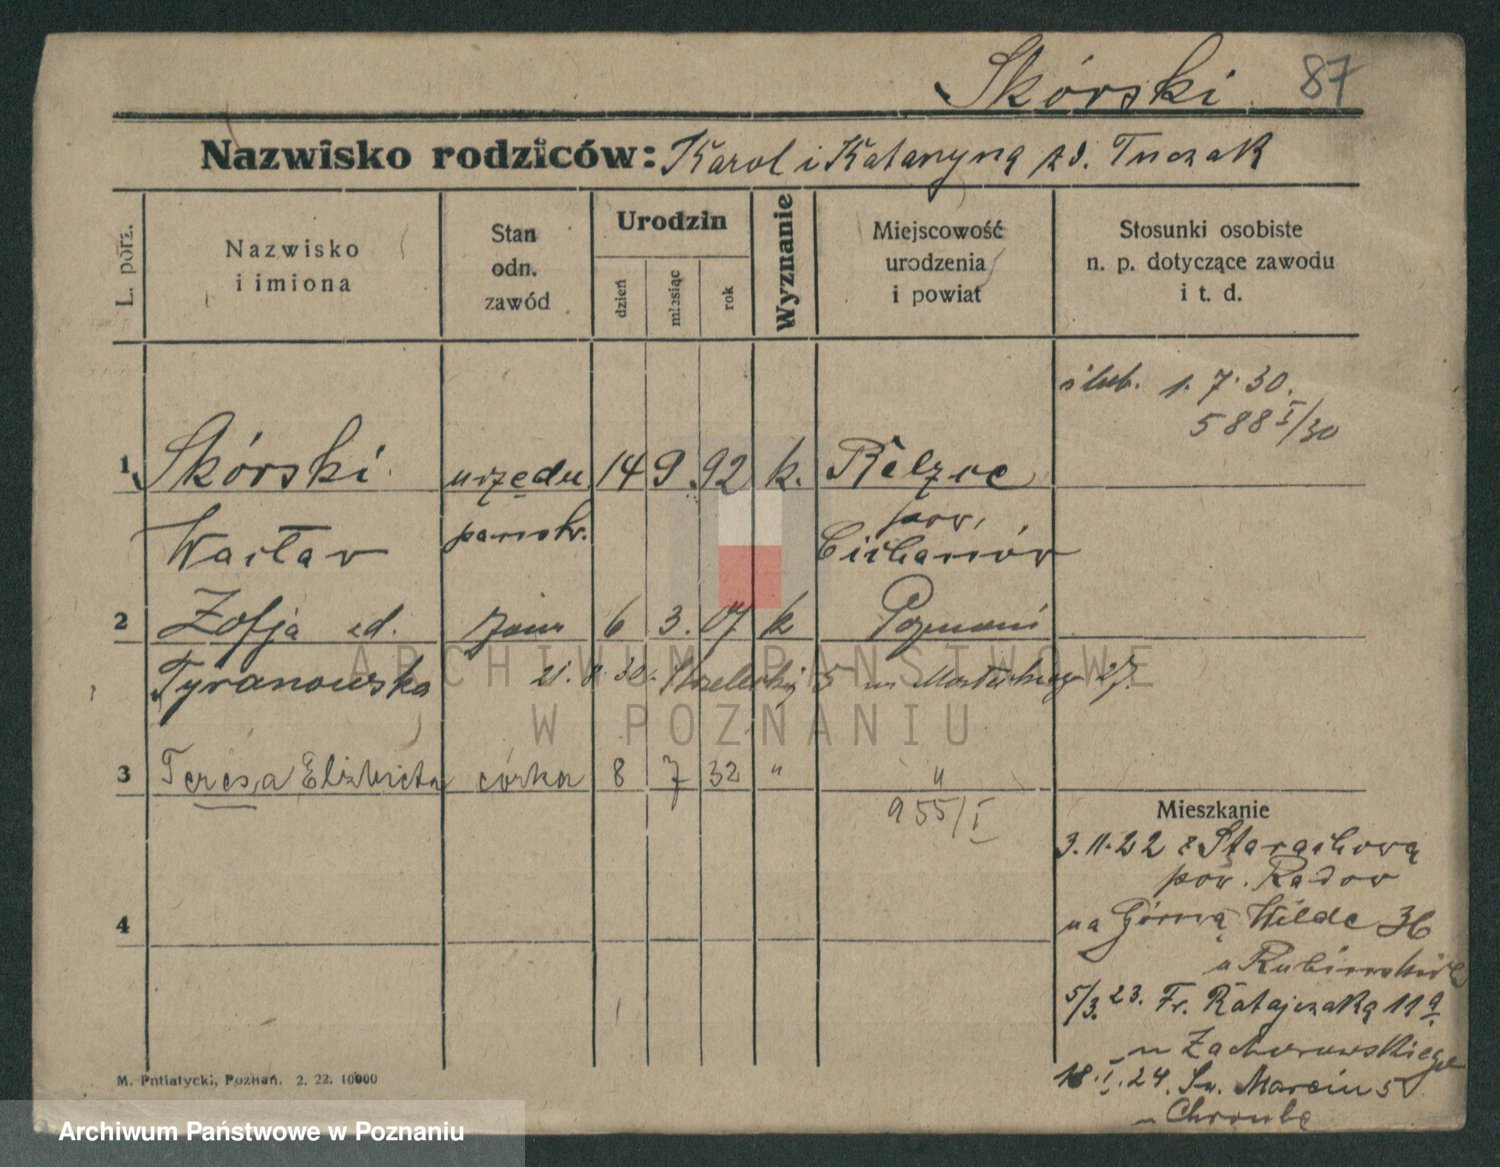 Skórski 87
Nazwisko rodziców: Karol i Katarzyna zd. Tuczak
L. porz.
Nazwisko i imiona
Stan odn. zawód
Urodzin
dzień
miesiąc
rok
Wyznanie
Miejscowość urodzenia i powiat
Stosunki osobiste n. p. dotyczące zawodu i t. d.
ślub. 1. 7. 30.
588 I/30
1 Skórski urzędn. 14 9 92 k.
Wacław państw. pow. Ciechanów
2 Zofja zd. żona 6 3. 07 k Poznań
Tyranowska 21. 30. Strzelecka 5 27.
3 Teresa Elżbieta córka 8 7 32 " "
955/I
Mieszkanie
3. 11. 22 z Starachową
pow. Radow
4
na Górną Wildę 36
u
5/3. 23. Fr. Ratajczaka 11 a
u
18. I. 24. Sw. Marcin 5
u
M. Putiatycki, Poznań. 2. 22. 10000
ARCHIWUM PAŃSTWOWE
W POZNANIU
Archiwum Państwowe w Poznaniu